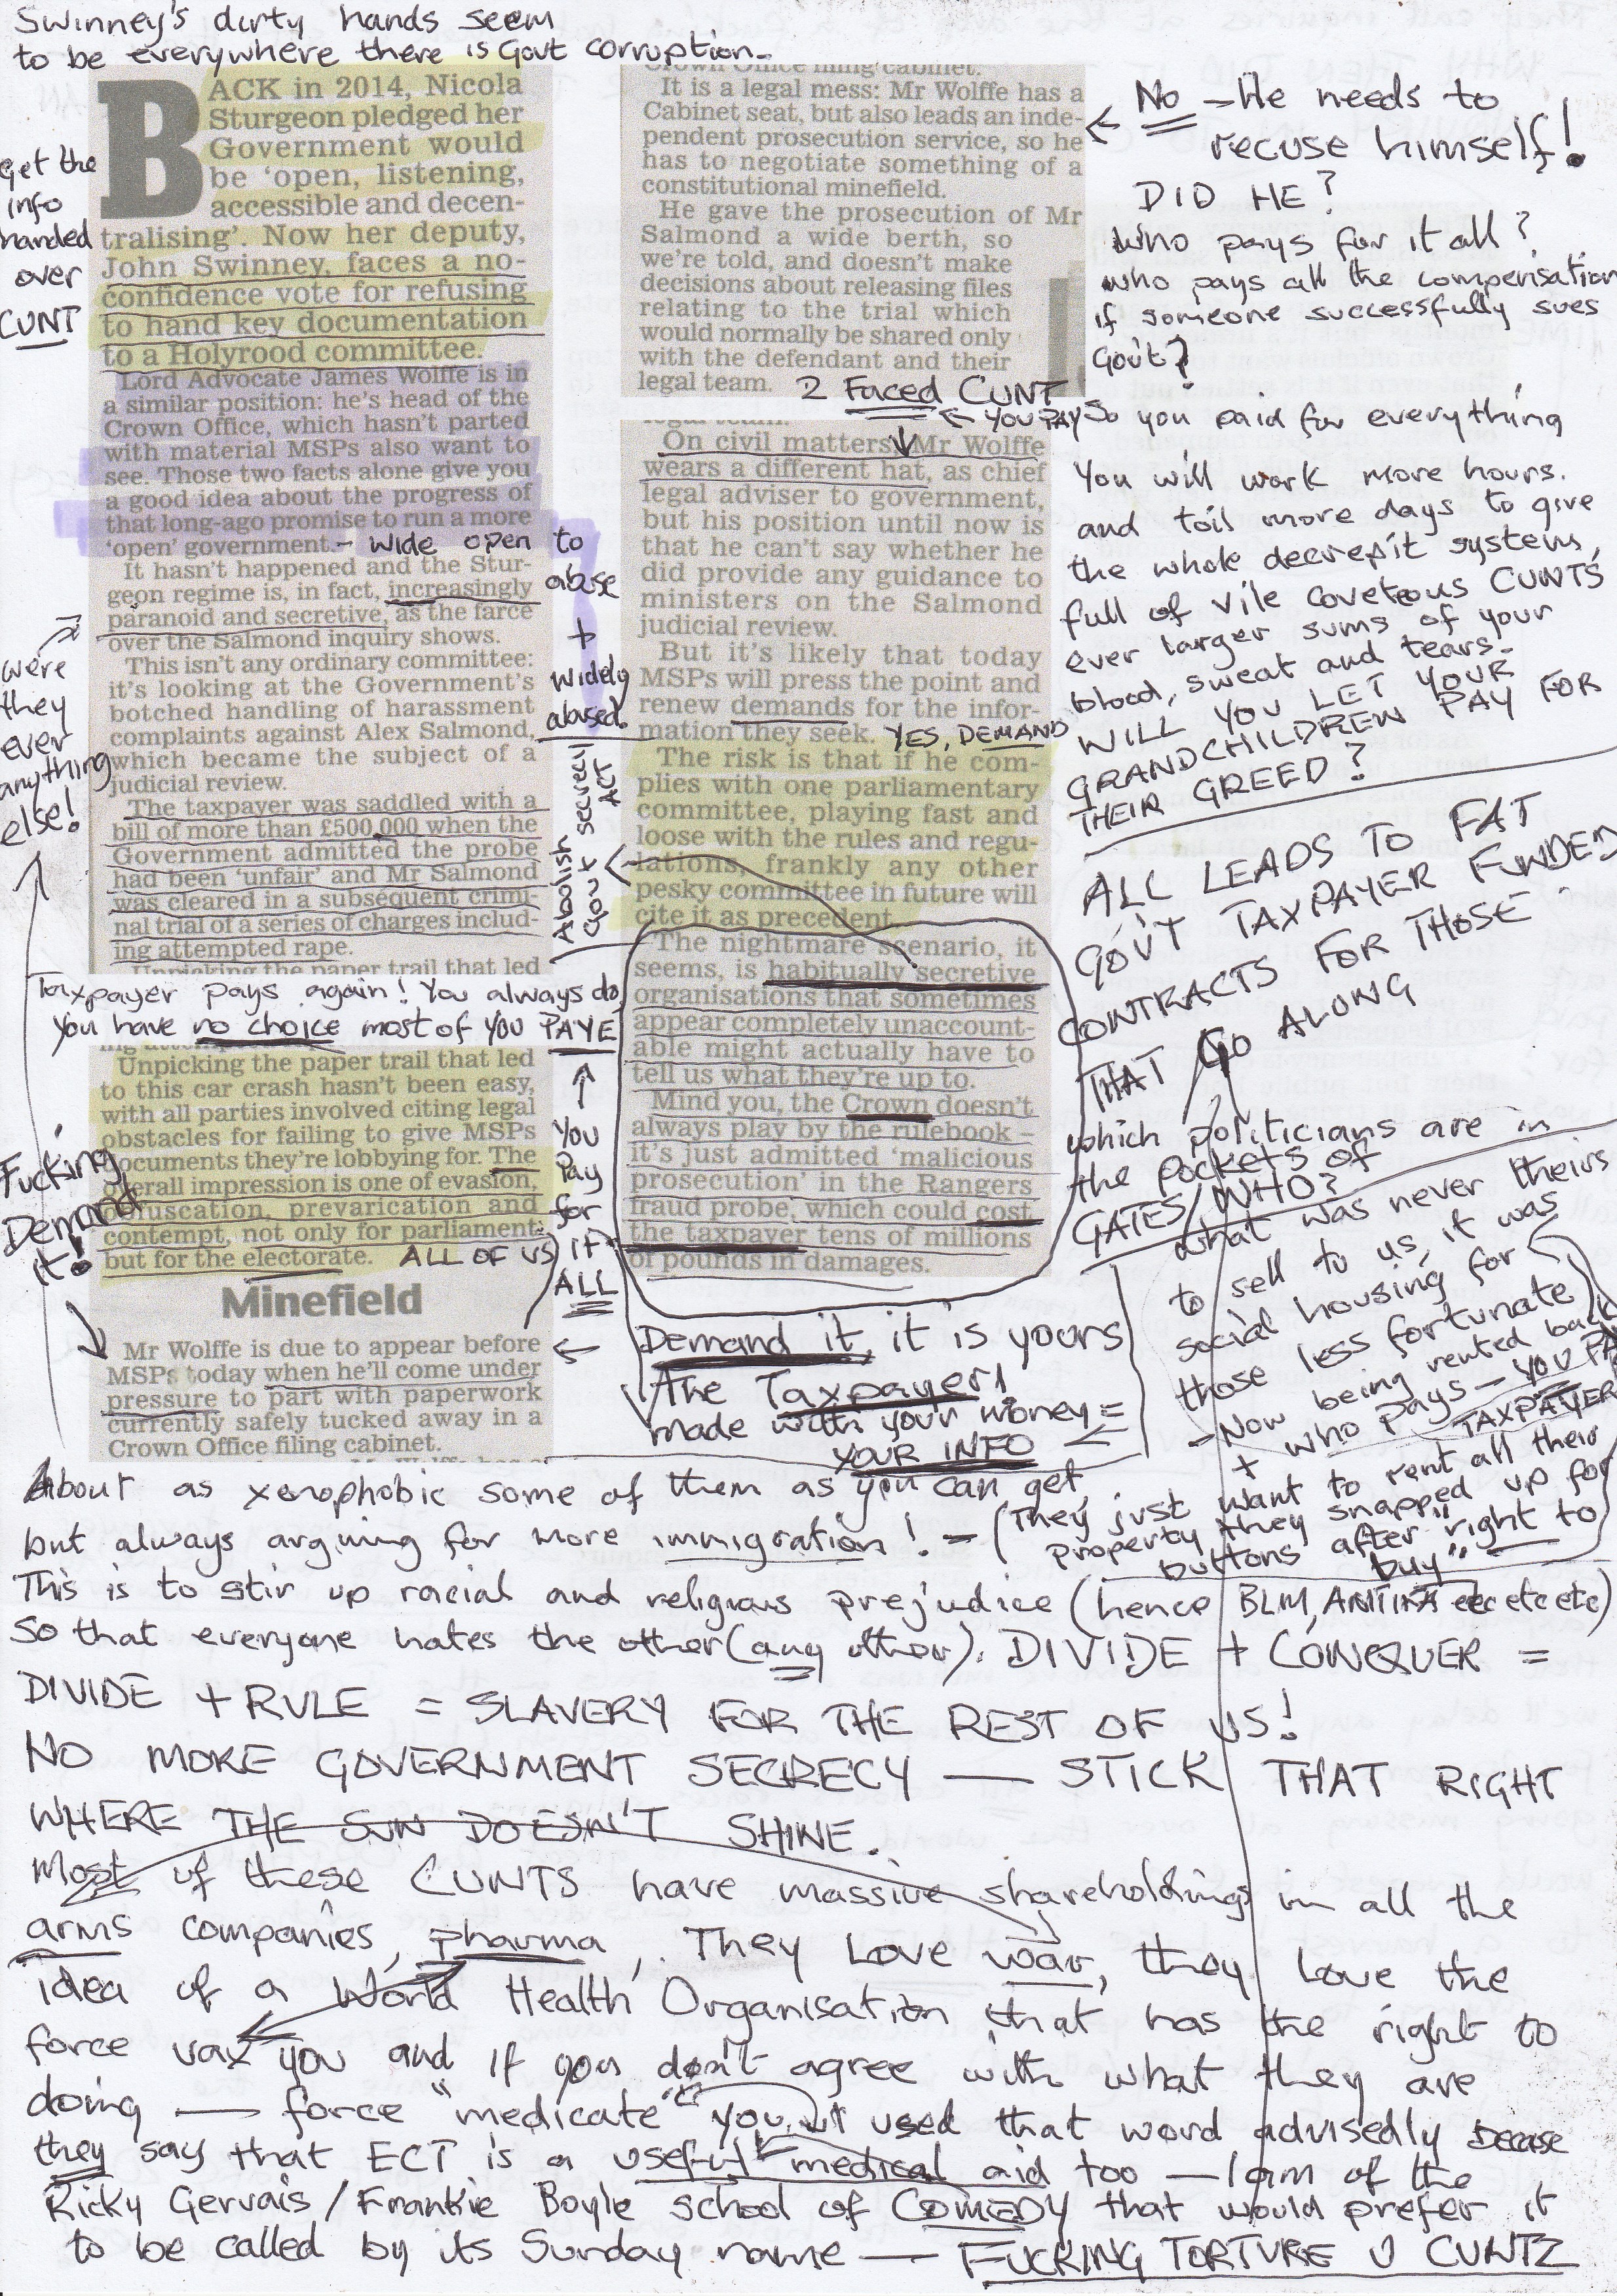 Swinney's dirty hands seem
to be everywhere there is Govt corruption.
BACK in 2014, Nicola
Sturgeon pledged her
Government would
be 'open, listening,
accessible and decen-
tralising'. Now her deputy,
John Swinney, faces a no-
confidence vote for refusing
to hand key documentation
to a Holyrood committee.
Lord Advocate James Wolffe is in
a similar position: he's head of the
Crown Office, which hasn't parted
with material MSPs also want to
see. Those two facts alone give you
a good idea about the progress of
that long-ago promise to run a more
'open' government. - wide open
It hasn't happened and the Stur-
geon regime is, in fact, increasingly
paranoid and secretive, as the farce
over the Salmond inquiry shows.
This isn't any ordinary committee:
it's looking at the Government's
botched handling of harassment
complaints against Alex Salmond,
which became the subject of a
judicial review.
The taxpayer was saddled with a
bill of more than £500,000 when the
Government admitted the probe
had been 'unfair' and Mr Salmond
was cleared in a subsequent crimi-
nal trial of a series of charges includ-
ing attempted rape.
Unpicking the paper trail that led
Taxpayer pays again! You always do,
you have no choice most of you PAYE
Unpicking the paper trail that led
to this car crash hasn't been easy,
with all parties involved citing legal
obstacles for failing to give MSPs
documents they're lobbying for. The
overall impression is one of evasion,
obfuscation, prevarication and
contempt, not only for parliament
but for the electorate. ALL OF US
Minefield
Mr Wolffe is due to appear before
MSPs today when he'll come under
pressure to part with paperwork
currently safely tucked away in a
Crown Office filing cabinet.
Get the
info
handed
over
CUNT
were
they
ever
anything
else!
Fucking
Demand
it!
to
abuse
+
widely
abused.
Abolish Gout secrecy
ACT
You
Pay
for
it
ALL
Crown Office filing cabinet.
It is a legal mess: Mr Wolffe has a
Cabinet seat, but also leads an inde-
pendent prosecution service, so he
has to negotiate something of a
constitutional minefield.
He gave the prosecution of Mr
Salmond a wide berth, so
we're told, and doesn't make
decisions about releasing files
relating to the trial which
would normally be shared only
with the defendant and their
legal team. 2 Faced CUNT
YOU PAY
On civil matters, Mr Wolffe
wears a different hat, as chief
legal adviser to government,
but his position until now is
that he can't say whether he
did provide any guidance to
ministers on the Salmond
judicial review.
But it's likely that today
MSPs will press the point and
renew demands for the infor-
mation they seek. YES, DEMAND
The risk is that if he com-
plies with one parliamentary
committee, playing fast and
loose with the rules and regu-
lations, frankly any other
pesky committee in future will
cite it as precedent.
The nightmare scenario, it
seems, is habitually secretive
organisations that sometimes
appear completely unaccount-
able might actually have to
tell us what they're up to.
Mind you, the Crown doesn't
always play by the rulebook –
it's just admitted 'malicious
prosecution' in the Rangers
fraud probe, which could cost
the taxpayer tens of millions
of pounds in damages.
Demand it, it is yours
The Taxpayer!
made with your money =
YOUR INFO
No - He needs to
recuse himself!
DID HE?
Who pays for it all?
who pays all the compensation
if someone successfully sues
Gov't?
So you paid for everything
You will work more hours.
and toil more days to give
the whole decrepit system,
full of vile coveteous CUNTS
ever larger sums of your
blood, sweat and tears.
WILL YOU LET YOUR
GRANDCHILDREN PAY FOR
THEIR GREED?
ALL LEADS TO FAT
GOV'T TAXPAYER FUNDED
CONTRACTS FOR THOSE
THAT GO ALONG
which politicians are in
the pockets of
GATES/WHO?
what was never theirs
to sell to us, it was
social housing for
those less fortunate
- Now being rented back
+ who pays - YOU PAY
TAXPAYER
About as xenophobic some of them as you can get,
but always arguing for more immigration! - (They just want to rent all their
property they snapped up for
buttons after "right to
buy"
This is to stir up racial and religious prejudice (hence BLM, ANTIFA etc etc etc)
So that everyone hates the other (any other). DIVIDE + CONQUER =
DIVIDE + RULE = SLAVERY FOR THE REST OF US!
NO MORE GOVERNMENT SECRECY — STICK THAT RIGHT
WHERE THE SUN DOESN'T SHINE.
Most of these CUNTS have massive shareholdings in all the
arms companies, pharma, . They love war, they love the
idea of a World Health Organisation that has the right to
force vax you and if you don't agree with what they are
doing — force "medicate" you. I used that word advisedly because
they say that ECT is a useful medical aid too — I am of the
Ricky Gervais / Frankie Boyle school of COMEDY that would prefer it
to be called by its Sunday name — FUCKING TORTURE U CUNTZ